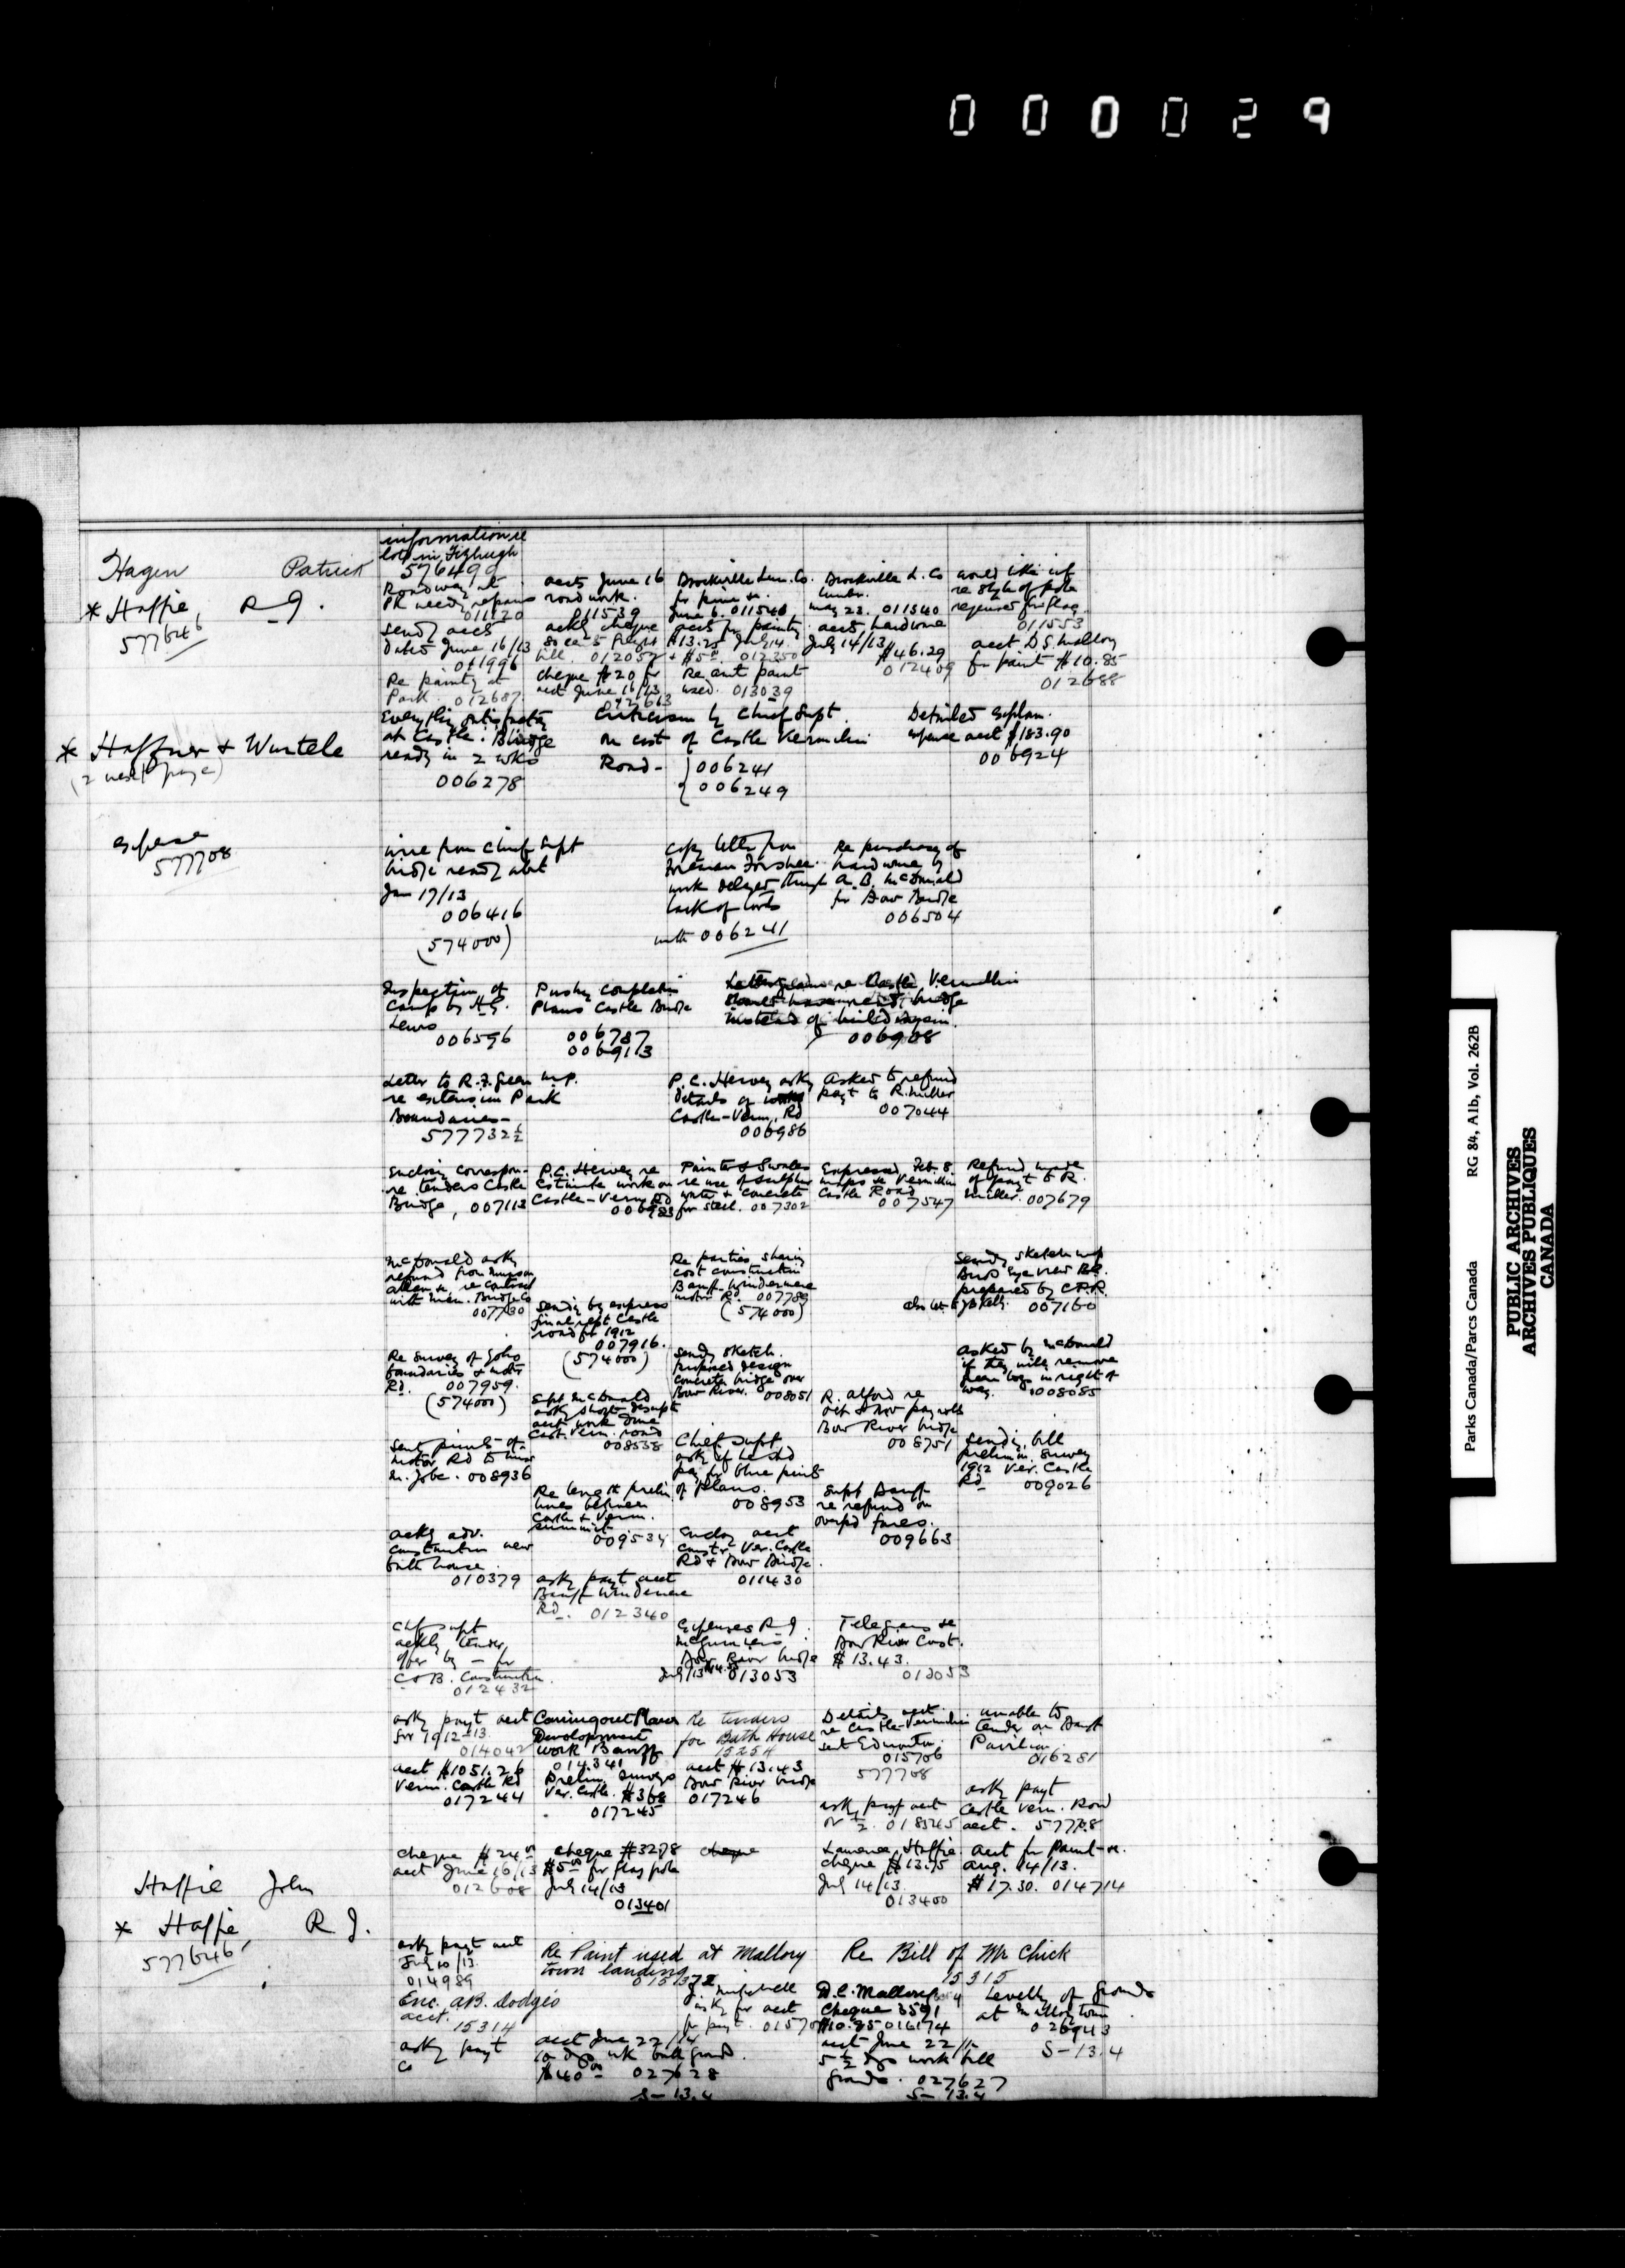 000029
Hagen Patrick
information re
lots in Fitzhugh
576499
* Haffie, R J.
577646
Roadway at
PR needs repairs
011120
accts June 16
road work.
011539
Brockville Lum. Co.
for pine &c.
June 6. 011540
Brockville L. Co
lumber.
may 22. 011540
would like inf
re style of pole
required for flag
011553
Sendg accts
dated June 16/13
011996
ackg cheque
bill. 012052
accts for paintg
$13.25 July 14
+ $5.00 012350
acct hardware
July 14/13
$46.29
012409
acct D.S. Mallory
for paint $10.85
012688
Re paintg at
Park 012687
cheque $20 for
acct June 16/13
012663
Re amt paint
used. 013039
* Haffner & Wurtele
(2 next page)
Everything satisfactory
at Castle. Bridge
ready in 2 wks
006278
Criticism by Chief Supt.
on cost of Castle Vermilion
Road-
006241
006249
Detailed explan.
expense acct $183.90
006924
expense
577708
wire from Chief Supt
bridge ready abt
Jan 17/13
006416
(574000)
copy letter from
Foreman
work delayed through
lack of tools
with 006241
Re purchasg of
hardware by
A. B. McDonald
for Bow Bridge
006504
Inspection of
Camp by H.G.
Lewis
006596
Pushg completion
Plans Castle Bridge
006787
006913
re Castle Vermilion
bridge
instead of
006908
Letter to R.F. Green M.P.
re extension Park
Boundaries-
577732½
P.C. Hervey askg
details of
Castle-Verm. Rd
006986
Asked to refund
payt to R. Miller
007044
Enclosg correspon-
re tenders Castle
Bridge, 007113
P.C. Hervey re
Estimate work on
Castle-Verm Rd
006983
Painter & Swales
re use of sulphur
water & concrete
for steel. 007302
Expressed Feb. 8
maps re Vermilion
Castle Road
007547
Refund made
of payt to R.
Miller. 007679
McDonald askg
refund from
re contract
with Bridge Co
007730
Sendg by express
final rept Castle
road for 1912
007916.
(574000)
Re parties sharing
cost construction
Banff-Windermere
motor Rd. 007789
(574000)
Sendg sketch map
Birds Eye view
prepared by C.P.R.
007160
Re survey of
boundaries & motor
Rd. 007959.
(574000)
Supt McDonald
askg short descript
acct work done
Cast. Verm. road
008538
Sendg sketch.
proposed design
concrete bridge over
Bow River. 008051
R. Alford re
Oct & Nov payrolls
Bow River bridge
008751
Asked by McDonald
if they will remove
logs in right of
way. 008085
Sent prints of
motor Rd to
M. Jobe. 008936
Chief Supt
askg if he shd
pay for blue prints
of plans.
008953
Sendg bill
prelimin. survey
1912 Ver. Castle
Rd 009026
Re length prelim
lines between
Castle & Verm.
summit
009534
Supt Banff
re refund on
overpd fares.
009663
askg adv.
construction new
bath house
010379
askg payt acct
Banff Windermere
Rd. 012340
Enclosg acct
constr Ver. Castle
Rd & Bow Bridge.
011430
Chf Supt
ackg tender,
offer by - for
C & B. Construction
012432
Expenses R J
Bow River bridge
July/13 013053
Telegrams re
Bow River Const.
$13.43.
013053
askg payt acct
for 1912-13
014042
Carrying out Plans
Development
work Banff
014341
Re tenders
for Bath House
15254
Details acct
re Castle-Vermilion
sent Edmonton
015706
577708
unable to
tender on Banff
Pavilion
016281
acct $1051.26
Verm. Castle Rd
017244
Prelim. surveys
Ver. Castle. $368
017245
acct $13.43
Bow River bridge
017246
askg payt acct
018545
askg payt
Castle Verm. Road
acct. 577708
Haffie John
* Haffie, R J.
577646
cheque $24.00
acct June 16/13
012608
cheque #3278
$5.00 for flag pole
July 14/13
013401
cheque
Lawrence Haffie
cheque $13.75
July 14/13.
013400
Acct for Paint-re.
Aug. 14/13.
$17.30. 014714
askg payt acct
July 10/13.
014989
Re Paint used at Mallory
town landing
015372
Re Bill of Mr Chick
15315
Enc. A.B. Dodge's
acct.
15314
askg for acct
for payt.
D.C. Mallory
Cheque 3591
$10.85-016174
Levellg of Grounds
at Mallorytown
026943
S-13.4
askg payt
Co
acct June 22/14
10 dys wk ball ground.
$40.00 027628
S-13.4
acct June 22/14
5½ dys work ball
grounds. 027627
S-13.4
Parks Canada/Parcs Canada RG 84, A1b, Vol. 262B
PUBLIC ARCHIVES
ARCHIVES PUBLIQUES
CANADA